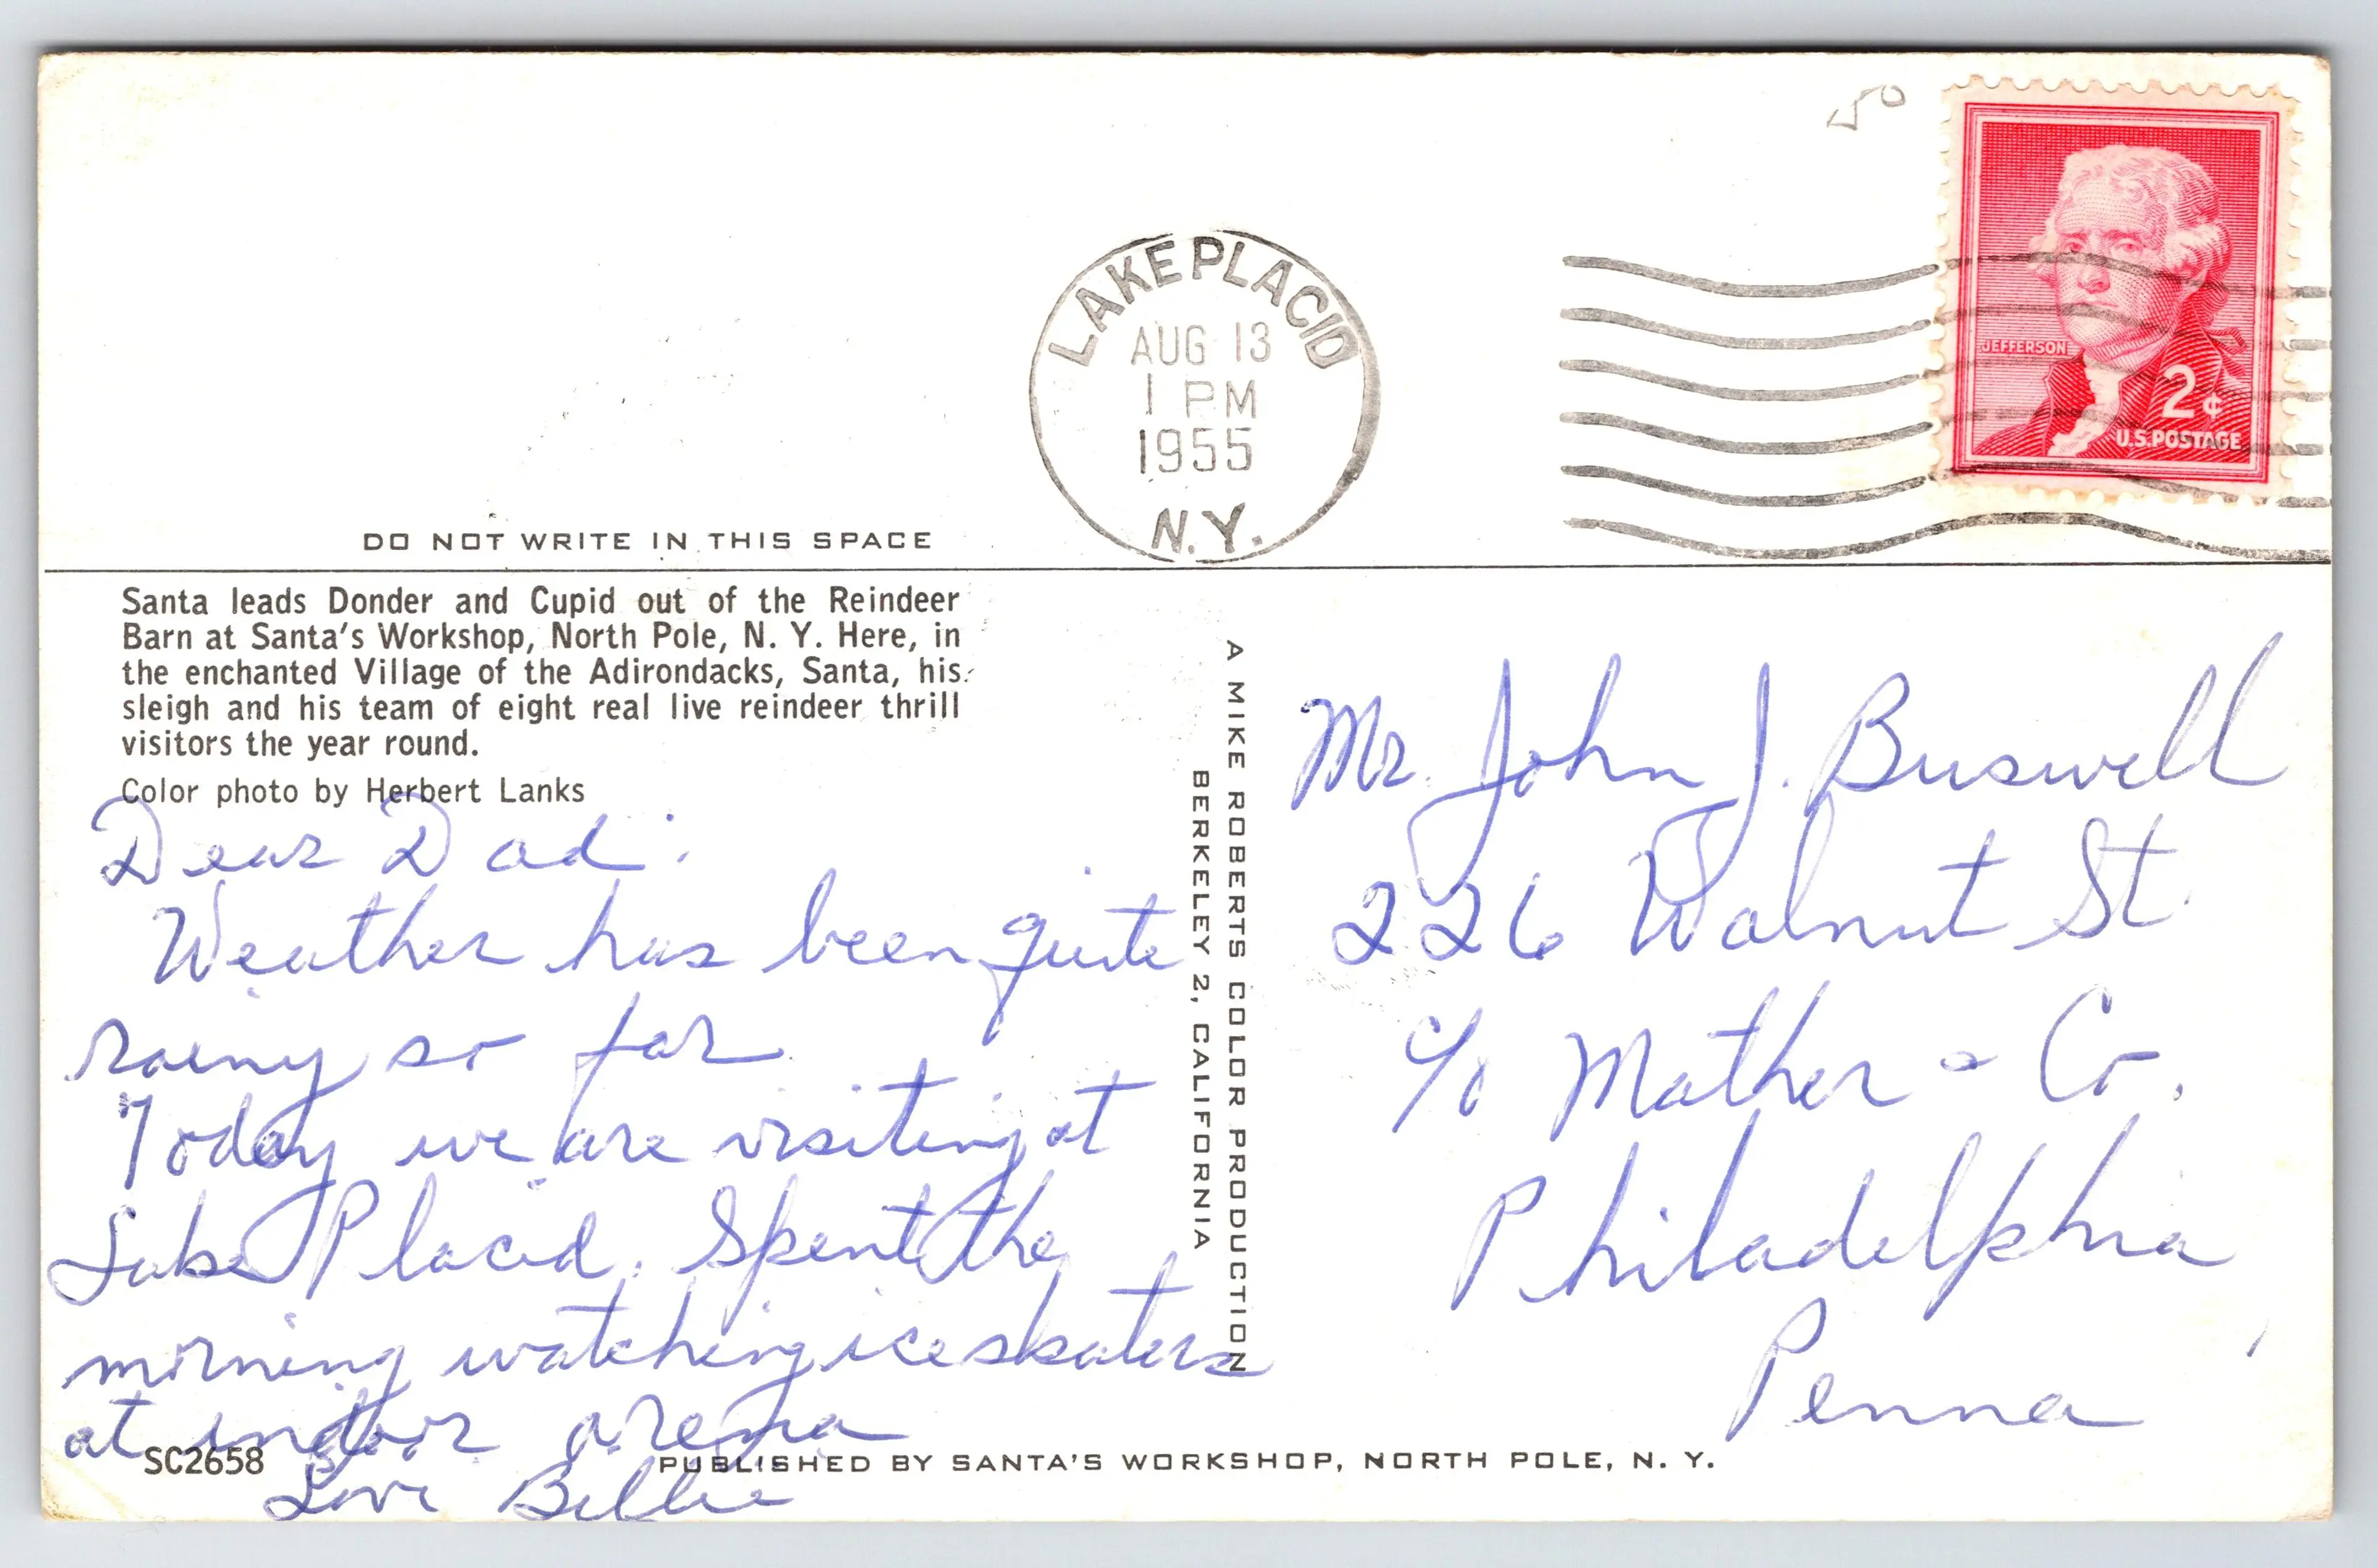 50
LAKE PLACID
AUG 13
1 PM
1955
N.Y.
JEFFERSON
2¢
U.S. POSTAGE
DO NOT WRITE IN THIS SPACE
Santa leads Donder and Cupid out of the Reindeer
Barn at Santa's Workshop, North Pole, N. Y. Here, in
the enchanted Village of the Adirondacks, Santa, his
sleigh and his team of eight real live reindeer thrill
visitors the year round.
Color photo by Herbert Lanks
Dear Dad:
Weather has been quite
rainy so far.
Today we are visiting at
Lake Placid. Spent the
morning watching ice skaters
at indoor arena
Love Billie
SC2658
PUBLISHED BY SANTA'S WORKSHOP, NORTH POLE, N. Y.
A MIKE ROBERTS COLOR PRODUCTION
BERKELEY 2, CALIFORNIA
Mr. John J. Buswell
226 Walnut St.
c/o Mather & Co.
Philadelphia,
Penna